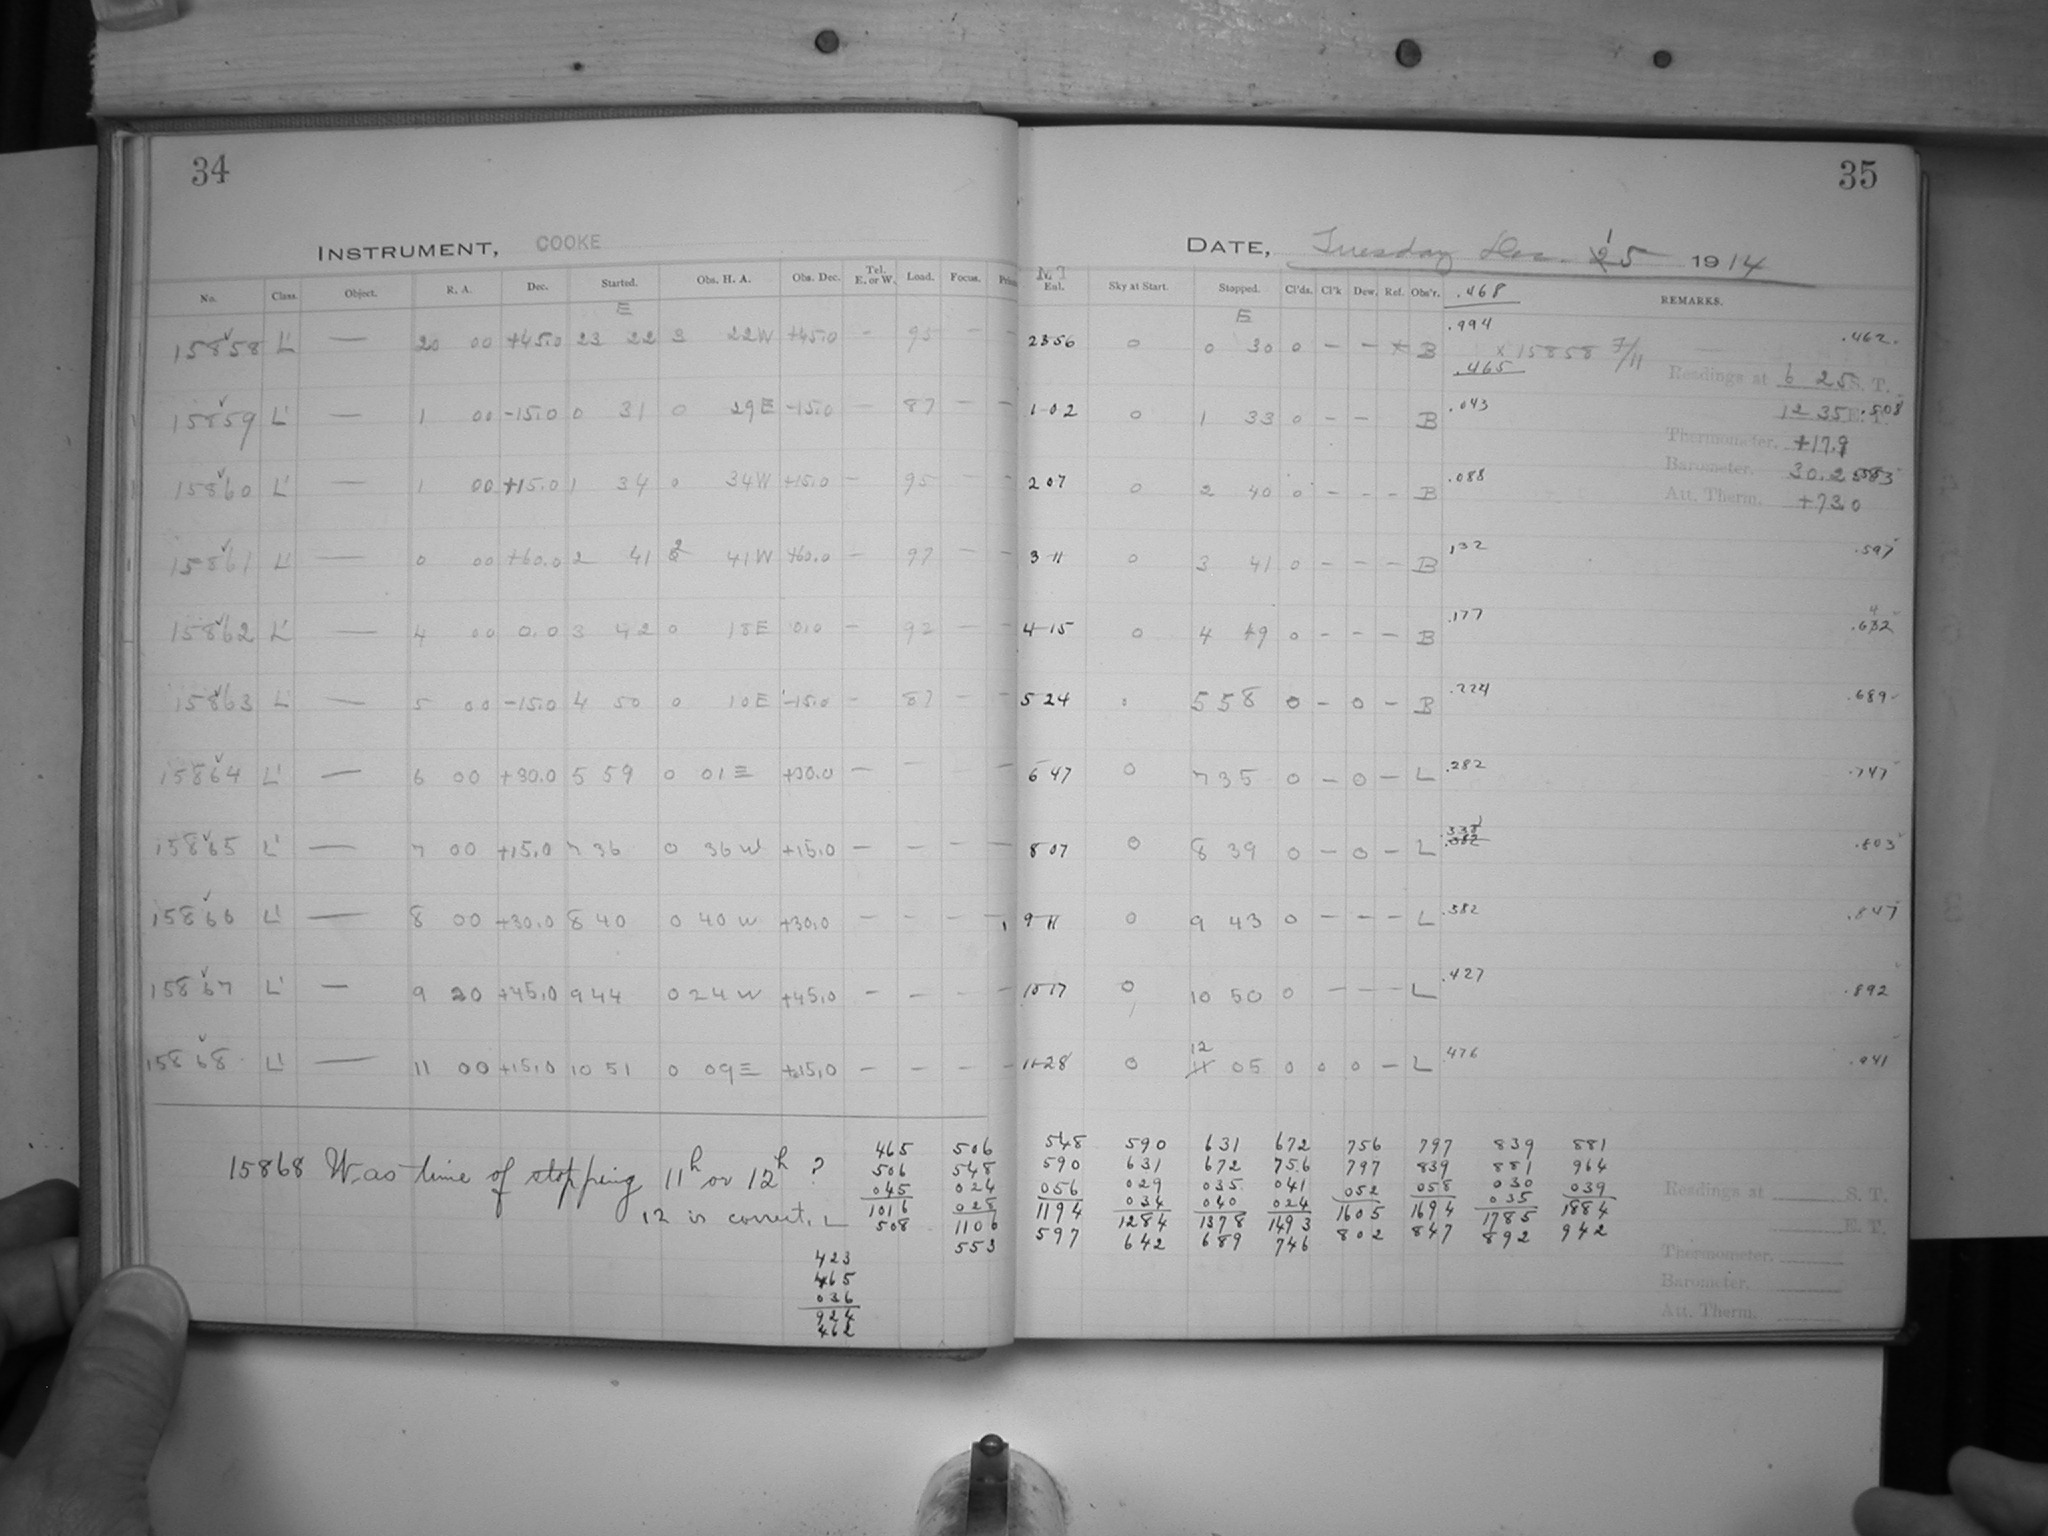 34
INSTRUMENT, COOKE
No. Class. Object. R. A. Dec. Started. Obs. H. A. Obs. Dec. Tel. E. or W. Load. Focus.
E
15858 L' — 20 00 +45.0 23 22 3 22W +45.0 – 95 – –
15859 L' — 1 00 -15.0 0 31 0 29E -15.0 – 87 – –
15860 L' — 1 00 +15.0 1 34 0 34W +15.0 – 95 – –
15861 L' — 0 00 +60.0 2 41 2 41W +60.0 – 97 – –
15862 L' — 4 00 0.0 3 42 0 18E 0.0 – 92 – –
15863 L' — 5 00 -15.0 4 50 0 10E -15.0 – 87 – –
15864 L' — 6 00 +30.0 5 59 0 01E +30.0 – – – –
15865 L' — 7 00 +15.0 7 36 0 36W +15.0 – – – –
15866 L' — 8 00 +30.0 8 40 0 40W +30.0 – – – –
15867 L' — 9 20 +45.0 9 44 0 24W +45.0 – – – –
15868 L' — 11 00 +15.0 10 51 0 09E +15.0 – – – –
15868 Was time of stopping 11h or 12h ?
12 is correct. L
423
465
036
924
462
465 506
506 548
045 024
1016 028
508 1106
553
35
DATE, Tuesday Dec. 15 1914
M.T. Sky at Start. Stopped. Cl'ds. Cl'k Dew. Ref. Obs'r. .468 REMARKS.
E
23 56 0 0 30 0 – – x B .994 x 15858 7/11 .462
.465
Readings at 6 25 S. T.
1-02 0 1 33 0 – – B .043 12 35 E. T. .508
Thermometer. +17.9
Barometer. 30.2
2 07 0 2 40 0 – – – B .088
Att. Therm. +73.0
3 11 0 3 41 0 – – – B .132 .597
4-15 0 4 49 0 – – – B .177 .632 4
5 24 0 5 58 0 – 0 – B .224 .689
6 47 0 7 35 0 – 0 – L .282 .747
8 07 0 8 39 0 – 0 – L .338 .382 .803
9 11 0 9 43 0 – – – L .382 .847
10 17 0 10 50 0 – – – L .427 .892
11-28 0 12 11 05 0 0 0 – L .476 .941
548 590 631 672 756 797 839 881
590 631 672 756 797 839 881 964
056 029 035 041 052 058 030 039
1194 034 040 024 1605 1694 035 1884
597 1284 1378 1493 802 847 1785 942
642 689 746 892
Readings at S. T.
E. T.
Thermometer.
Barometer.
Att. Therm.